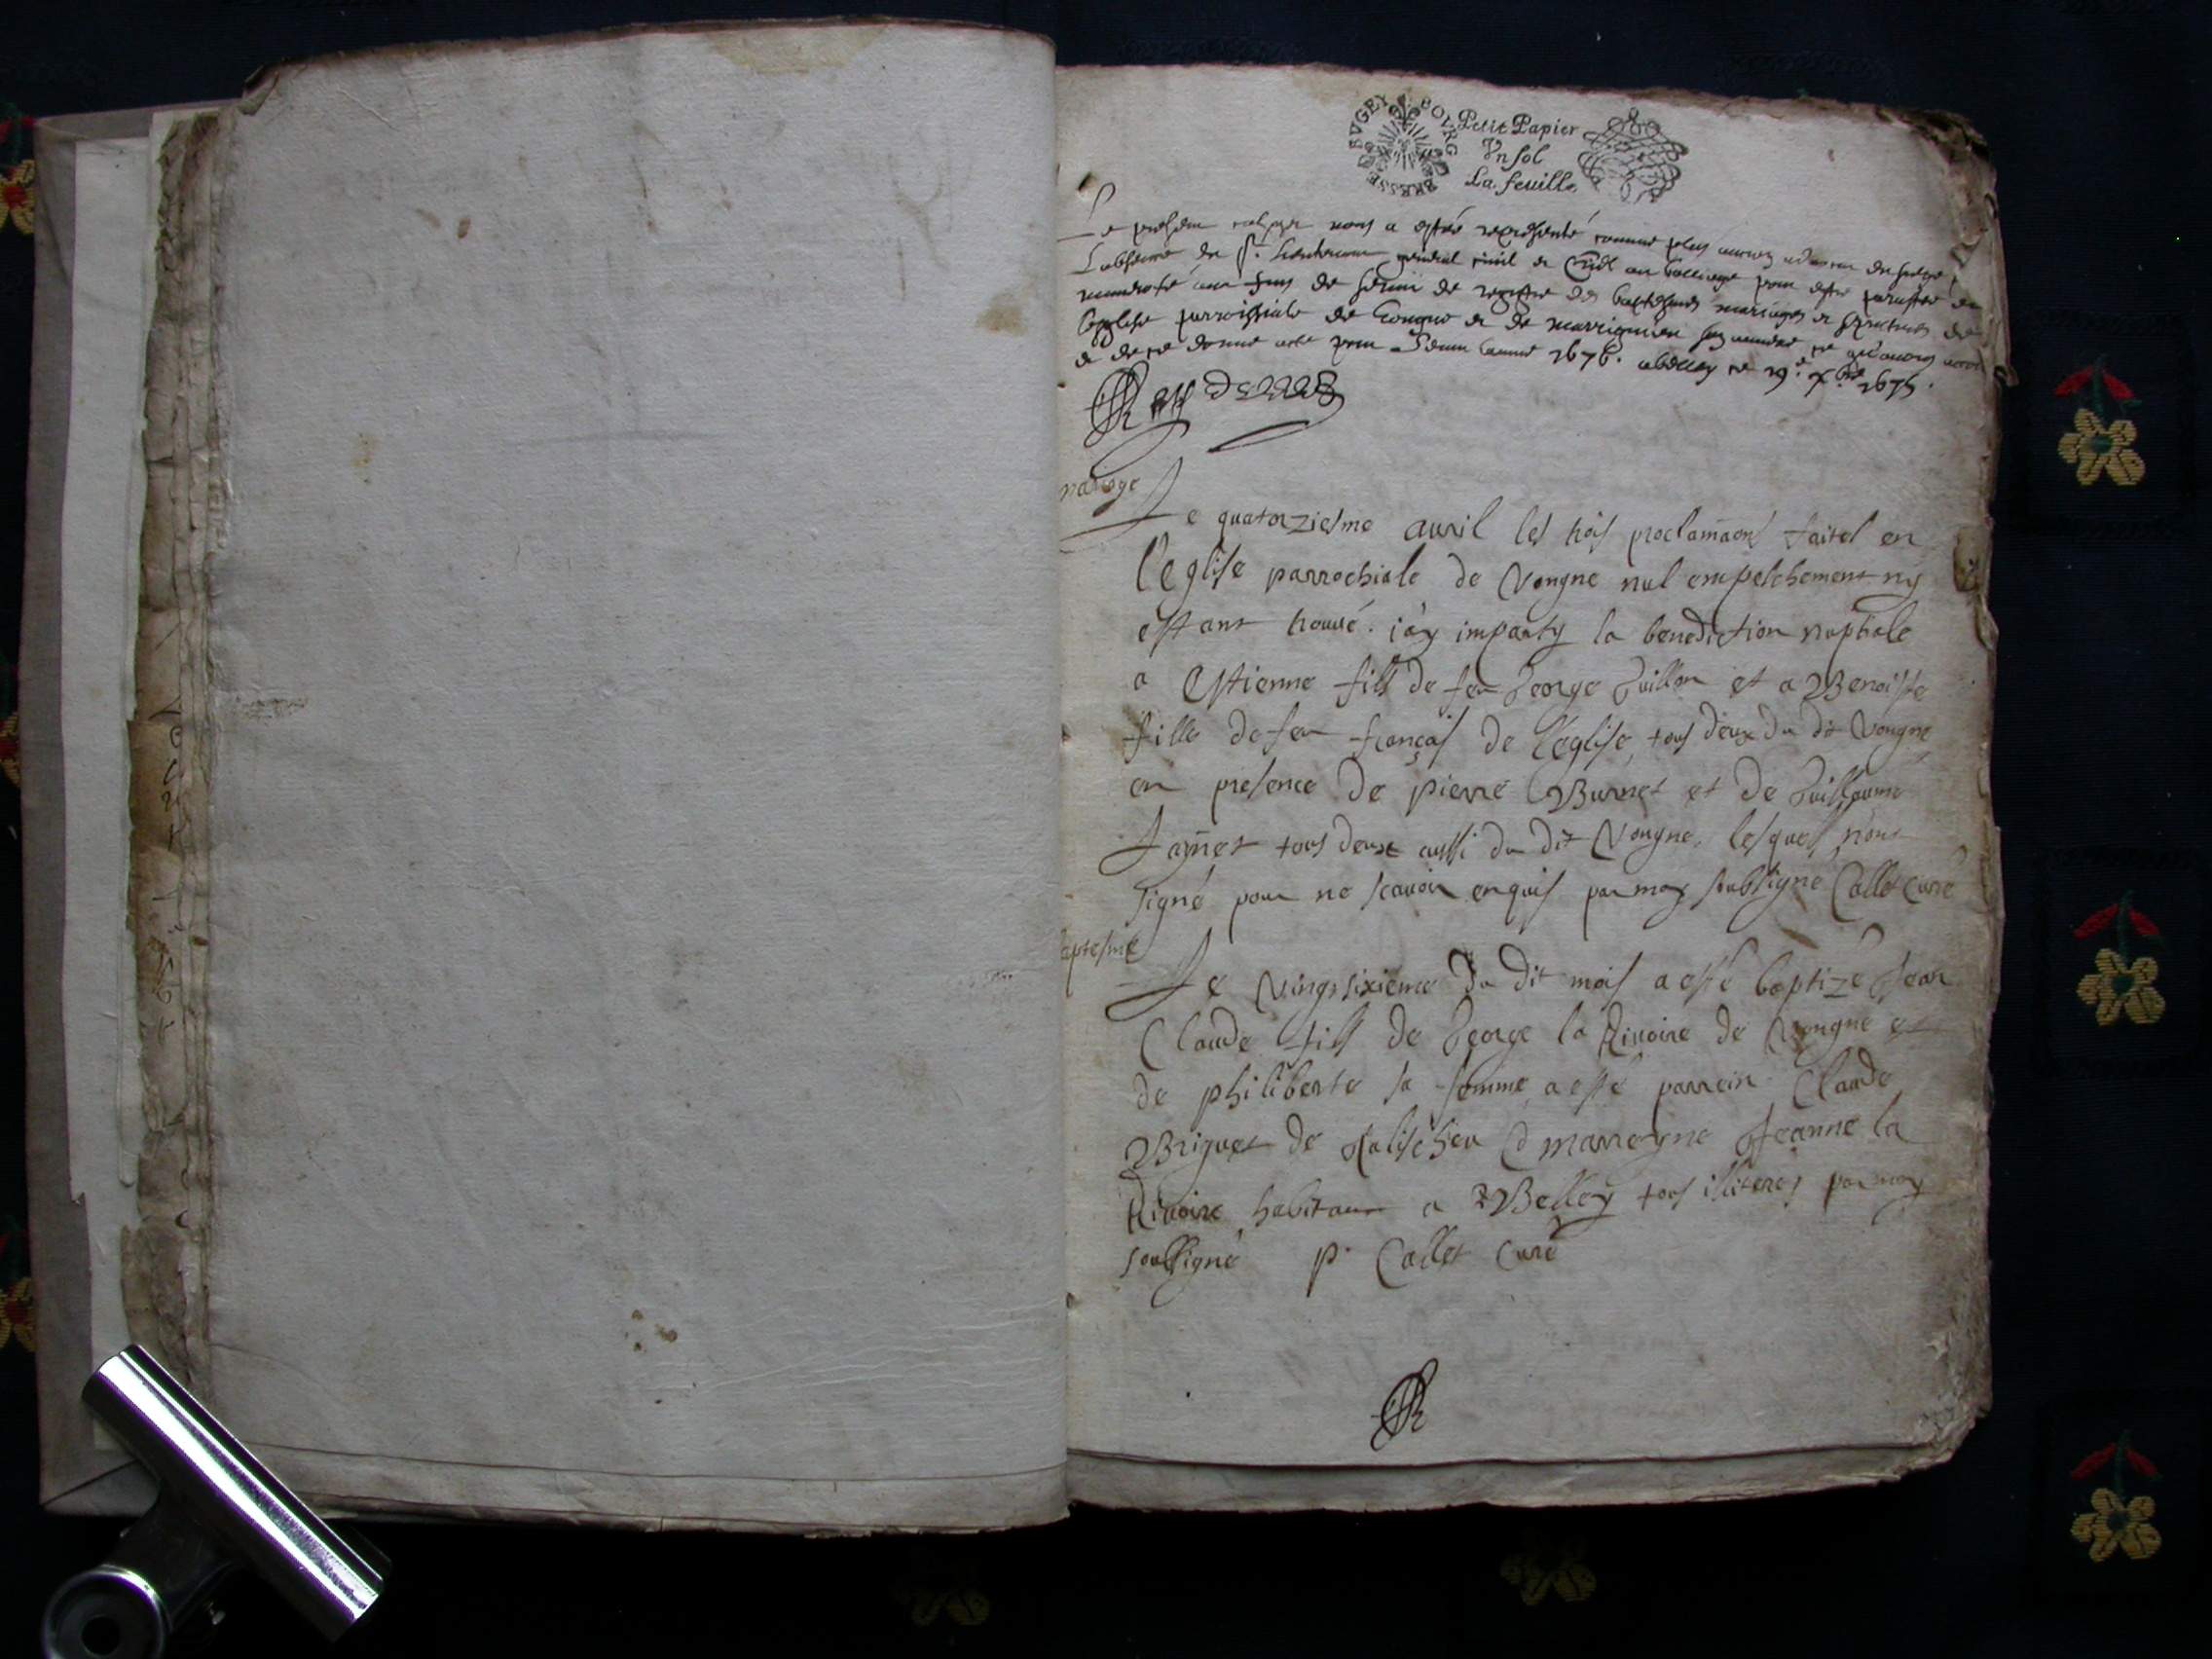 BVGEY BOVRG BRESSE
Petit Papier
Vn sol
La feuille
Le presem cahyer nous a esté representé comme plus ancien advocat
Labsence du sr. Lieutenant general civil et au bailliage pour estre paraffé
aux fins de servir de registre des baptesmes mariages et de
leglise parroissiale de Vongne et de marrignieu son annexe ce qu'avons
et de ce donné acte pour Lanné 1676. a belley ce 19e. Xbre 1675.
mariage
Le quatorziesme auril les trois proclamaons faites en
l'eglise parrochiale de Vongne nul empeschement ny
estant trouué. i'ay imparty la benediction nuptiale
a Estienne fils de feu George Guillon et a Benoiste
fille de feu françois de l'eglise, tous deux du dit Vongne
en presence de pierre Burnet et de Guillaume
tous deux aussi du dit Vongne, lesquels n'ont
signé pour ne scauoir enquis par moy soubsigné Callet Curé
baptesme
Le vingtsixieme du dit mois a esté baptizé Jean
Claude fils de George la Riuoire de Vongne et
de philiberte sa femme, a esté parrein Claude
Briguet de et marreyne Jeanne la
Riuoire habitant a Belley tous illiteres par moy
soubsigné p. Callet Curé